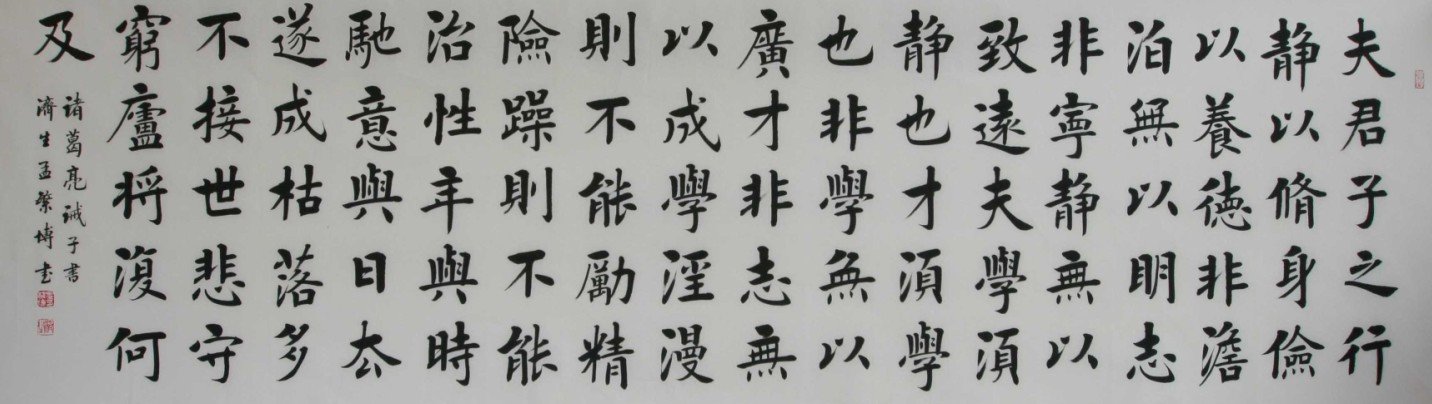 夫君子之行
静以脩身儉
以養德非澹
泊無以明志
非寧静無以
致遠夫學須
静也才須學
也非學無以
廣才非志無
以成學淫漫
則不能勵精
險躁則不能
治性年與時
馳意與日去
遂成枯落多
不接世悲守
窮廬將復何
及
諸葛亮誡子書
濟生孟繁博書